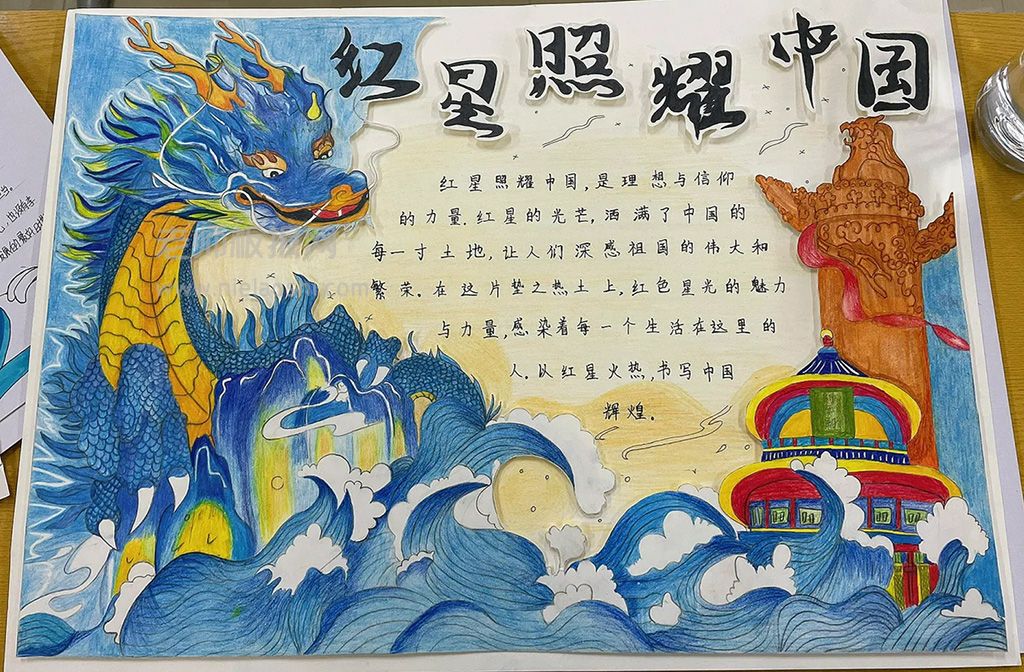 红星照耀中国
红星照耀中国,是理想与信仰
的力量.红星的光芒,洒满了中国的
每一寸土地,让人们深感祖国的伟大和
繁荣.在这片垫之热土上,红色星光的魅力
与力量,感染着每一个生活在这里的
人.以红星火热,书写中国
辉煌.